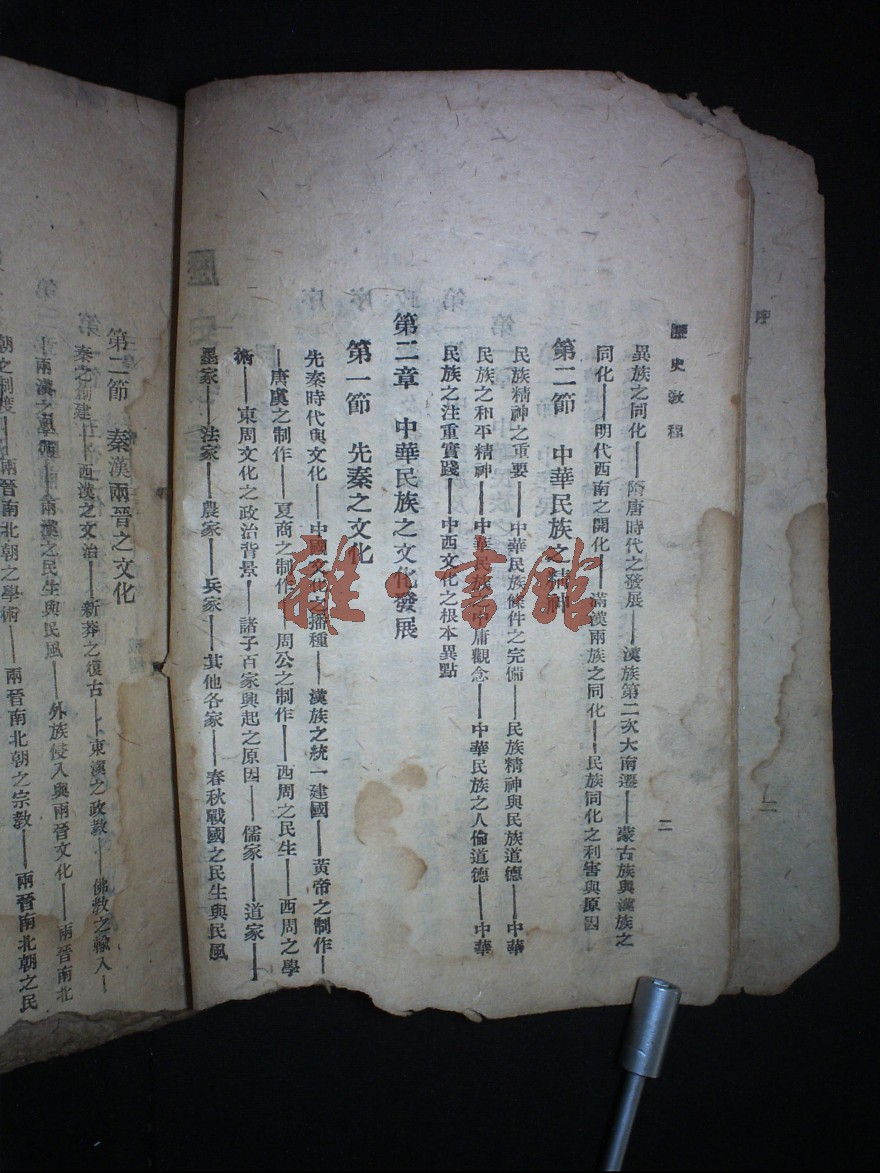 序
二
歷史教程
二
異族之同化——隋唐時代之發展——漢族第二次大南遷——蒙古族與漢族之
同化——明代西南之開化——滿漢兩族之同化——民族同化之利害與原因
第二節 中華民族之精神
民族精神之重要——中華民族條件之完備——民族精神與民族道德——中華
民族之和平精神——中華民族之中庸觀念——中華民族之人倫道德——中華
民族之注重實踐——中西文化之根本異點
第二章 中華民族之文化發展
第一節 先秦之文化
先秦時代與文化——中國文化之播種——漢族之統一建國——黃帝之制作—
—唐虞之制作——夏商之制作——周公之制作——西周之民生——西周之學
術——東周文化之政治背景——諸子百家興起之原因——儒家——道家——
墨家——法家——農家——兵家——其他各家——春秋戰國之民生與民風
第二節 秦漢兩晉之文化
秦之創建——西漢之文治——新莽之復古——東漢之政教——佛教之輸入—
—兩漢之學術——兩漢之民生與民風——外族侵入與兩晉文化——兩晉南北
朝之制度——兩晉南北朝之學術——兩晉南北朝之宗教——兩晉南北朝之民
雜·書館